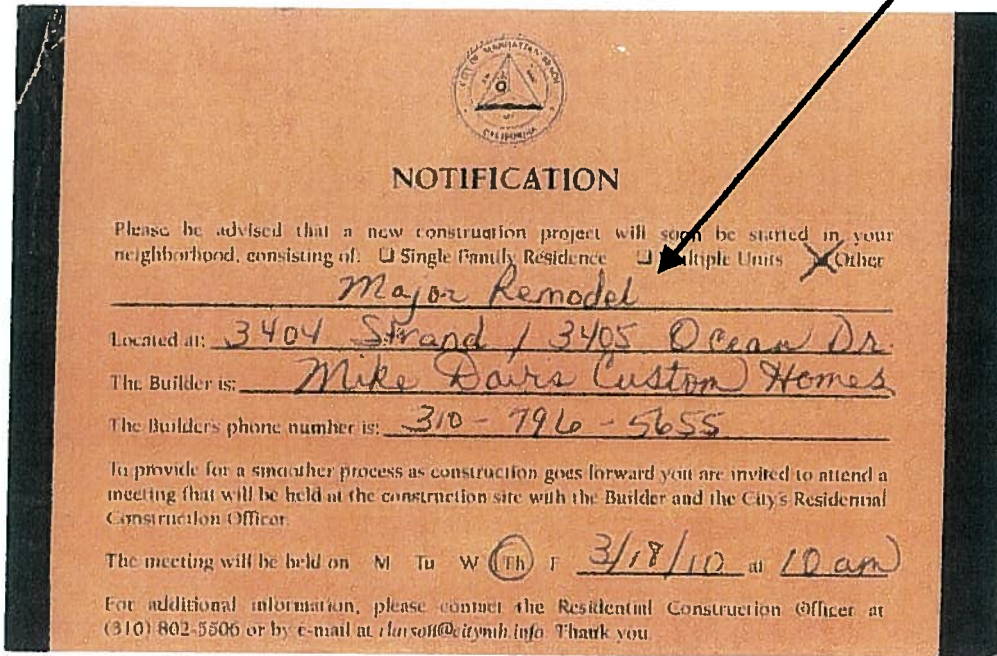 CITY OF MANHATTAN BEACH
CALIFORNIA
NOTIFICATION
Please be advised that a new construction project will soon be started in your
neighborhood, consisting of: ❑ Single Family Residence ❑ Multiple Units ❑ Other
Major Remodel
Located at: 3404 Strand / 3405 Ocean Dr.
The Builder is: Mike Davis Custom Homes
The Builders phone number is: 310-796-5655
To provide for a smoother process as construction goes forward you are invited to attend a
meeting that will be held at the construction site with the Builder and the City's Residential
Construction Officer.
The meeting will be held on M Tu W Th F 3/18/10 at 10 am
For additional information, please contact the Residential Construction Officer at
(310) 802-5506 or by e-mail at Thank you